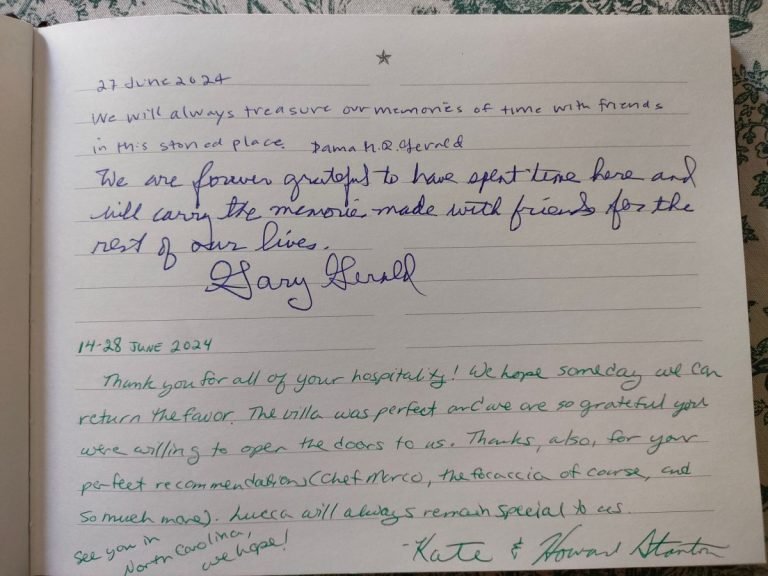 27 June 2024
We will always treasure our memories of time with friends
in this storied place. Dama H.Q. Gerald
We are forever grateful to have spent time here and
will carry the memorie made with friends for the
rest of our lives.
Gary Gerald
14-28 JUNE 2024
Thank you for all of your hospitality! We hope someday we can
return the favor. The villa was perfect and we are so grateful you
were willing to open the doors to us. Thanks, also, for your
perfect recommendations (Chef Marco, the focaccia of course, and
so much more). Lucca will always remain special to us.
See you in
North Carolina,
we hope!
-Kate & Howard Stanton